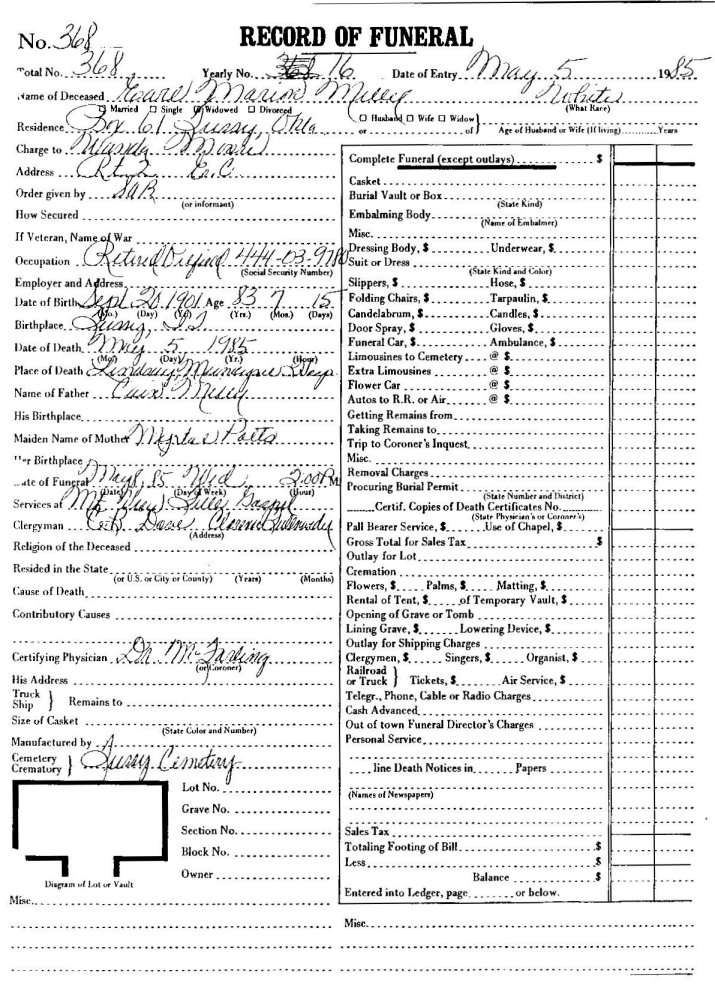 No. 368
RECORD OF FUNERAL
Total No. 368 Yearly No. 368 16 Date of Entry May 5 1985
Name of Deceased Marion White
☐ Married ☐ Single Widowed ☐ Divorced (What Race)
Residence Box 61 Okla ☐ Husband ☐ Wife ☐ Widow } or of Age of Husband or Wife (If living) Years
Charge to Wanda
Address Rt. 2
Order given by
(or informant)
How Secured
If Veteran, Name of War
Occupation Retired
(Social Security Number)
Employer and Address
Date of Birth Sept 20 1901 Age 83 7 15
(Mo.) (Day) (Yr.) (Yrs.) (Mos.) (Days)
Birthplace
Date of Death May 5 1985
(Mo.) (Day) (Yr.) (Hour)
Place of Death Lindsay Municipal Hosp
Name of Father
His Birthplace
Maiden Name of Mother
Her Birthplace
Date of Funeral May 8, 85 Wed 2:00 PM
(Date) (Day of Week) (Hour)
Services at Mt.
Clergyman
(Address)
Religion of the Deceased
Resided in the State
(or U.S. or City or County) (Years) (Months)
Cause of Death
Contributory Causes
Certifying Physician Dr.
(or Coroner)
His Address
Truck
Ship } Remains to
Size of Casket
(State Color and Number)
Manufactured by
Cemetery
Crematory } Cemetery
Lot No.
Grave No.
Section No.
Block No.
Owner
Diagram of Lot or Vault
Misc.
Complete Funeral (except outlays) $
Casket
Burial Vault or Box
(State Kind)
Embalming Body
(Name of Embalmer)
Misc.
Dressing Body, $ Underwear, $
Suit or Dress
(State Kind and Color)
Slippers, $ Hose, $
Folding Chairs, $ Tarpaulin, $
Candelabrum, $ Candles, $
Door Spray, $ Gloves, $
Funeral Car, $ Ambulance, $
Limousines to Cemetery @ $
Extra Limousines @ $
Flower Car @ $
Autos to R.R. or Air @ $
Getting Remains from
Taking Remains to
Trip to Coroner's Inquest
Misc.
Removal Charges
Procuring Burial Permit
(State Number and District)
Certif. Copies of Death Certificates No.
(State Physician's or Coroner's)
Pall Bearer Service, $ Use of Chapel, $
Gross Total for Sales Tax $
Outlay for Lot
Cremation
Flowers, $ Palms, $ Matting, $
Rental of Tent, $ of Temporary Vault, $
Opening of Grave or Tomb
Lining Grave, $ Lowering Device, $
Outlay for Shipping Charges
Clergymen, $ Singers, $ Organist, $
Railroad
or Truck } Tickets, $ Air Service, $
Telegr., Phone, Cable or Radio Charges
Cash Advanced
Out of town Funeral Director's Charges
Personal Service
line Death Notices in Papers
(Names of Newspapers)
Sales Tax
Totaling Footing of Bill $
Less $
Balance $
Entered into Ledger, page or below.
Misc.